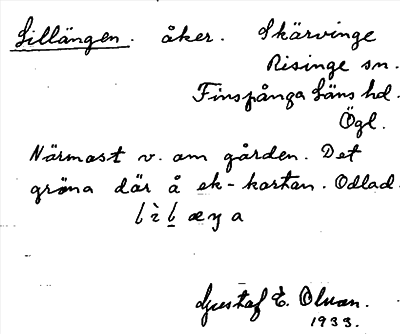 Lillängen. åker. Skärvinge
Risinge sn.
Finspånga läns hd.
Ögl.
Närmast v. om gården. Det
gröna där å ek-kartan. Odlad.
Gustaf E. Olsson.
1933.